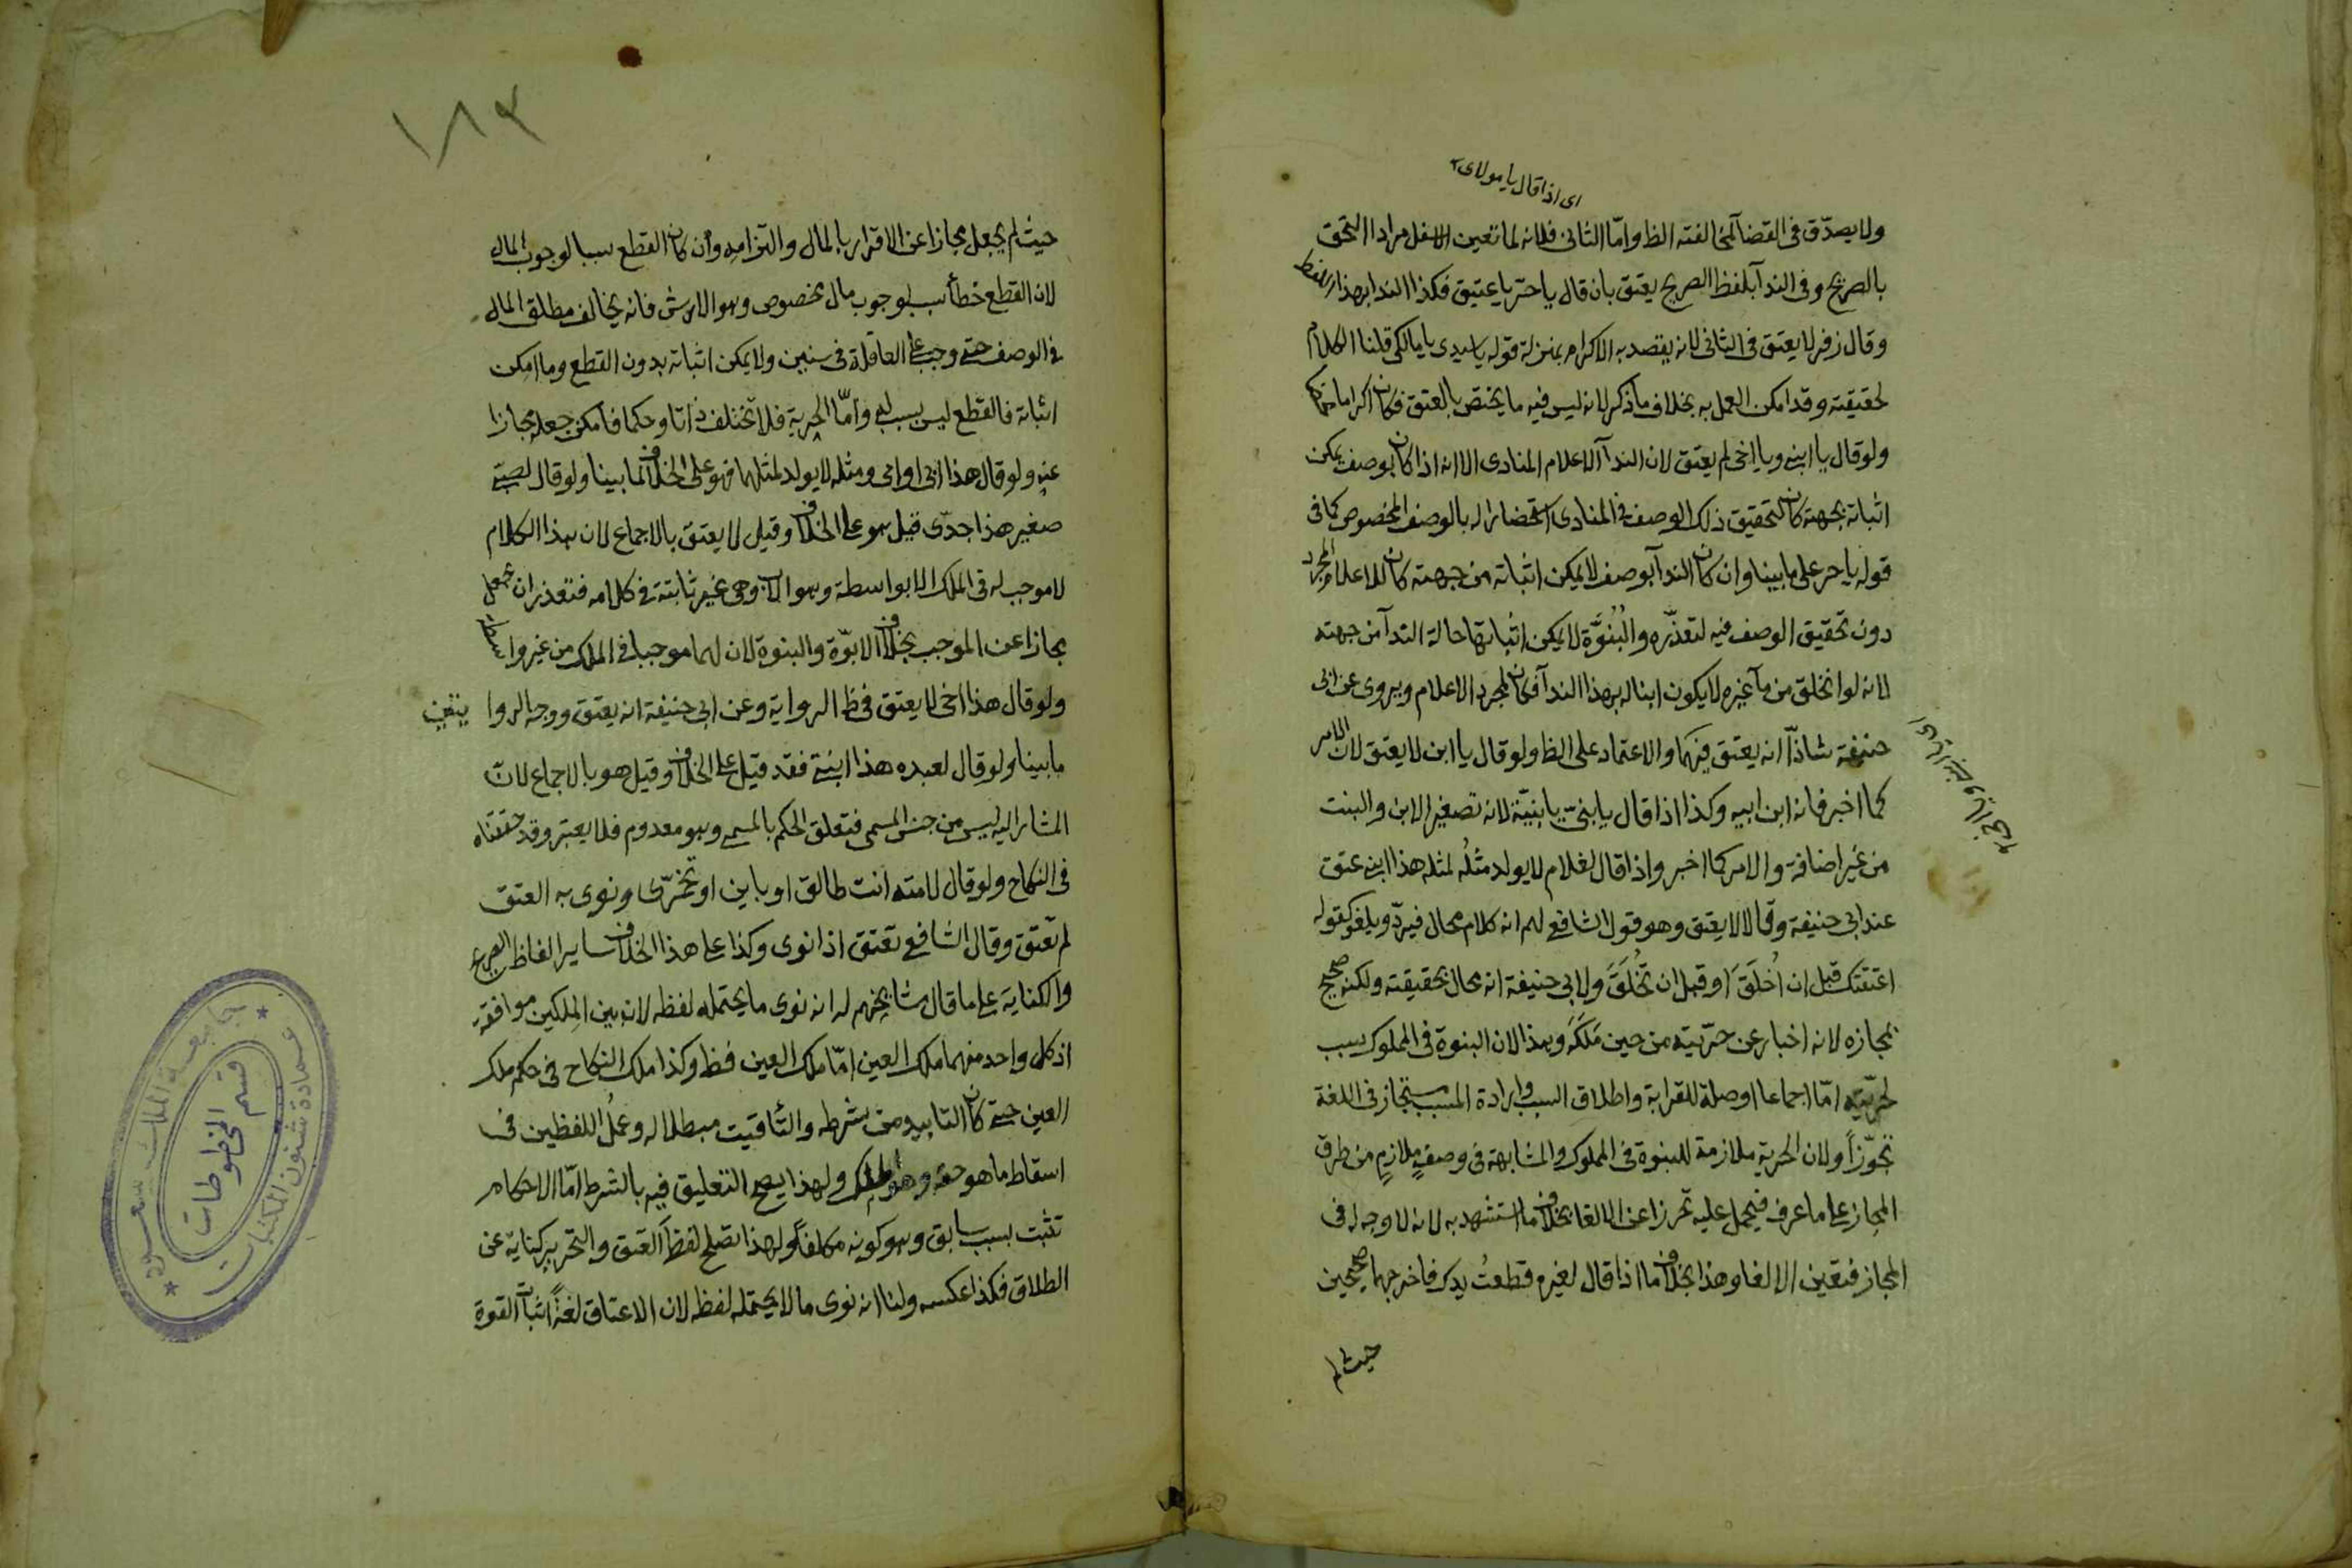 اى اذا قال يا مولاى
ولا يصدّق فى القضآ لمخالفته الظ وامّا الثانى فلانه لما تعين الاسفل مرادا التحق
بالصريح وفى الندآ بلفظ الصريح يعتق بان قال يا حرّ يا عتيق فكذا الندا بهذا اللفظ
وقال زفر لا يعتق فى الثانى لانه يقصد به الاكرام بمنزلة قوله يا سيدى يا مالكى قلنا الكلام
لحقيقته وقد امكن العمل به بخلاف ما ذكر لانه ليس فيه ما يختص بالعتق فكان اكراما محضا
ولو قال يا ابنى ويا اخى لم يعتق لان الندآ لاعلام المنادى الا انه اذا كان بوصف يمكن
اثباته بجهته كان لتحقيق ذلك الوصف فى المنادى استحضارا له بالوصف المخصوص كما فى
قوله يا حر على ما بينا وان كان الندآ بوصف لا يمكن اثباته من جهته كان للاعلام المجرد
دون تحقيق الوصف فيه لتعذّره والبُنُوَّة لا يمكن اثباتها حالة الندآ من جهته
لانه لو انخلق من مآ غيره لا يكون ابنا له بهذا الندآ فكان لمجرد الاعلام ويروى عن ابى
حنيفة شاذّا انه يعتق فيهما والاعتماد على الظ ولو قال يا ابن لا يعتق لان الامر
كما اخبر فانه ابن ابيه وكذا اذا قال يا بنىّ يا بنيّة لانه تصغير الابن والبنت
من غير اضافة والامر كما اخبر واذا قال لغلام لا يولد مثلُه لمثله هذا ابنى عتق
عند ابى حنيفة وقالا لا يعتق وهو قول الشافعى لهم انه كلام محال فيردّ ويلغو كقوله
اعتقتك قبل ان اُخلَقَ او قبل ان تُخلَقَ ولابى حنيفة انه محال بحقيقته ولكنه صحيح
بمجازه لانه اخبار عن حرّيته من حين مَلَكَه وهذا لان البنوة فى المملوك سبب
لحرّيّته امّا اجماعا او صلة للقرابة واطلاق السبب وارادة المسبب مستجاز فى اللغة
تجوّزاً ولان الحرية ملازمة للبنوة فى المملوك والمشابهة فى وصفٍ ملازمٍ من طرق
المجاز على ما عرف فيحمل عليه تحرزا عن الالغا بخلاف ما استشهد به لانه لا وجه له فى
المجاز فتعين الالغا وهذا بخلاف ما اذا قال لغيره قطعتُ يدك فاخرجهما صحيحين
حيث لم
١٨٣
حيث لم يجعل مجازا عن الاقرار بالمال والتزامه وان كان القطع سببا لوجوب المال
لان القطع خطأ سبب لوجوب مال مخصوص وهو الارش فانه يخالف مطلق المال
فى الوصف حتى وجب على العاقلة فى سنين ولا يمكن اثباته بدون القطع وما امكن
اثباته فالقطع ليس بسبب له وامّا الحرية فلا تختلف ذاتا وحكما فامكن جعله مجازا
عنه ولو قال هذا ابى او امى ومثله لا يولد لمثلهما فهو على الخلاف لما بينا ولو قال لصبىّ
صغير هذا جدّى قيل هو على الخلاف وقيل لا يعتق بالاجماع لان هذا الكلام
لا موجب له فى الملك الا بواسطة وهو الاب وهى غير ثابتة فى كلامه فتعذر ان يجعل
مجازا عن الموجب بخلاف الابوّة والبنوة لان لهما موجبا فى الملك من غير واسطة
ولو قال هذا اخى لا يعتق فى ظ الرواية وعن ابى حنيفة انه يعتق ووجه الروايتين
ما بينا ولو قال لعبده هذا ابنتى فقد قيل على الخلاف وقيل هو بالاجماع لان
المشار اليه ليس من جنس المسمى فتعلق الحكم بالمسمى وهو معدوم فلا يعتبر وقد حققناه
فى النكاح ولو قال لامته انت طالق او باين او تخمّرى ونوى به العتق
لم تعتق وقال الشافعى تعتق اذا نوى وكذا على هذا الخلاف ساير الفاظ الصريح
والكناية على ما قال مشايخهم له انه نوى ما يحتمله لفظه لان بين الملكين موافقة
اذ كل واحد منهما ملك العين امّا ملك العين فظ وكذا ملك النكاح فى حكم ملك
العين حتى كان التابيد من شرطه والتأقيت مبطلا له وعملُ اللفظين فى
اسقاط ما هو حقه وهو الملك ولهذا يصح التعليق فيه بالشرط امّا الاحكام
تثبت بسبب سابق وهو كونه مكلفاً ولهذا تصلح لفظة العتق والتحرير كناية عن
الطلاق فكذا عكسه ولنا انه نوى ما لا يحتمله لفظه لان الاعتاق لغةً اثبات القوة
جامعة الملك سعود
عمادة شئون المكتبات
قسم المخطوطات